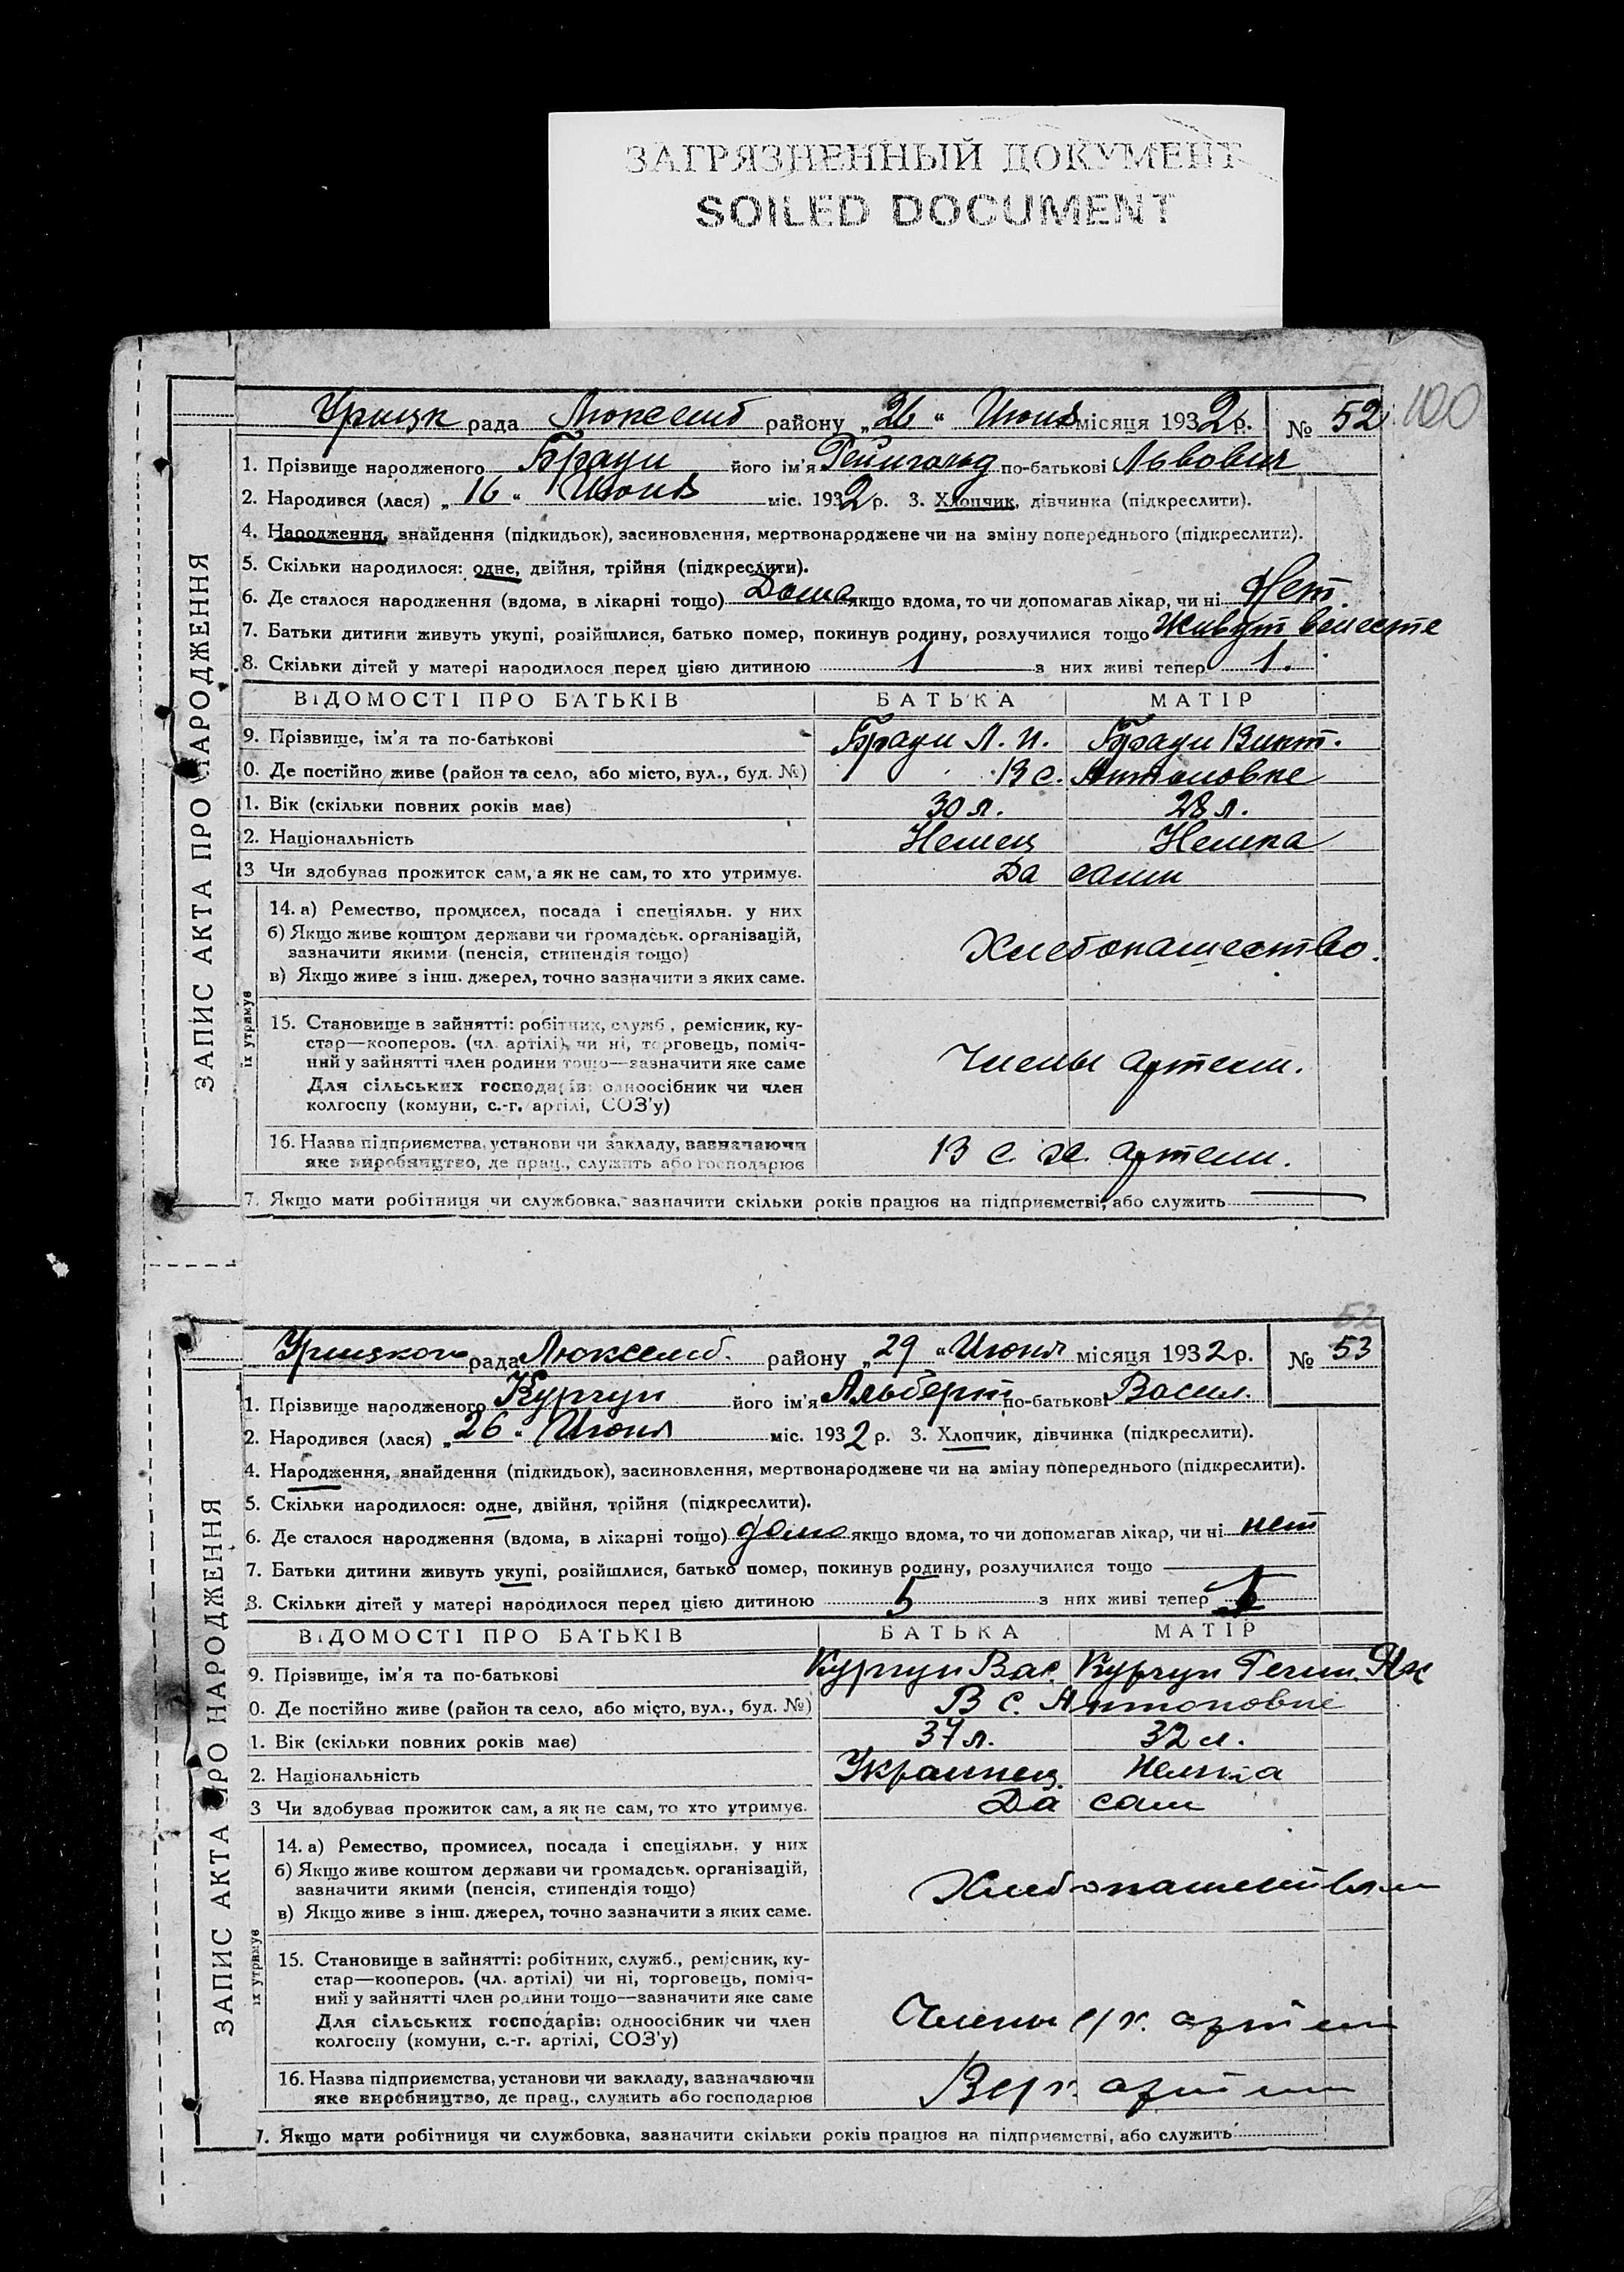 ЗАГРЯЗНЕННЫЙ ДОКУМЕНТ
SOILED DOCUMENT
100
Урицк рада Люксемб району „26“ Июня місяця 1932р. № 52
ЗАПИС АКТА ПРО НАРОДЖЕННЯ
1. Прізвище народженого його ім'я Рейнгольд по-батькові Львович
2. Народився (лася) „16“ Июня міс. 1932 р. 3. Хлопчик, дівчинка (підкреслити).
4. Народження, знайдення (підкидьок), засиновлення, мертвонароджене чи на зміну попереднього (підкреслити).
5. Скільки народилося: одне, двійня, трійня (підкреслити).
6. Де сталося народження (вдома, в лікарні тощо) Дома якщо вдома, то чи допомагав лікар, чи ні Нет.
7. Батьки дитини живуть укупі, розійшлися, батько помер, покинув родину, розлучилися тощо Живут вместе
8. Скільки дітей у матері народилося перед цією дитиною 1 з них живі тепер 1.
ВІДОМОСТІ ПРО БАТЬКІВ БАТЬКА МАТІР
9. Прізвище, ім'я та по-батькові Л. И. Викт.
0. Де постійно живе (район та село, або місто, вул., буд. №) В с. Антоновке
1. Вік (скільки повних років має) 30 л. 28 л.
2. Національність Немец Немка
13 Чи здобуває прожиток сам, а як не сам, то хто утримує. Да сами
14. а) Ремество, промисел, посада і спеціяльн. у них
б) Якщо живе коштом держави чи громадськ. організацій,
зазначити якими (пенсія, стипендія тощо) Хлебопашество.
в) Якщо живе з інш. джерел, точно зазначити з яких саме.
їх утримує
15. Становище в зайнятті: робітник, служб., ремісник, ку-
стар—кооперов. (чл. артілі) чи ні, торговець, поміч-
ний у зайнятті член родини тощо—зазначити яке саме Члены артели.
Для сільських господарів: одноосібник чи член
колгоспу (комуни, с.-г. артілі, СОЗ'у)
16. Назва підприємства, установи чи закладу, зазначаючи
яке виробництво, де прац., служить або господарює В с. х. артели.
7. Якщо мати робітниця чи службовка, зазначити скільки років працює на підприємстві, або служить
52
Урицкого рада Люксемб. району „29“ Июня місяця 1932р. № 53
ЗАПИС АКТА ПРО НАРОДЖЕННЯ
1. Прізвище народженого Курчун його ім'я Альберт по-батькові Васил.
2. Народився (лася) „26“ Июня міс. 1932 р. 3. Хлопчик, дівчинка (підкреслити).
4. Народження, знайдення (підкидьок), засиновлення, мертвонароджене чи на зміну попереднього (підкреслити).
5. Скільки народилося: одне, двійня, трійня (підкреслити).
6. Де сталося народження (вдома, в лікарні тощо) дома якщо вдома, то чи допомагав лікар, чи ні нет
7. Батьки дитини живуть укупі, розійшлися, батько помер, покинув родину, розлучилися тощо
8. Скільки дітей у матері народилося перед цією дитиною 5 з них живі тепер
ВІДОМОСТІ ПРО БАТЬКІВ БАТЬКА МАТІР
9. Прізвище, ім'я та по-батькові Курчун Вас. Курчун
0. Де постійно живе (район та село, або місто, вул., буд. №) В с. Антоновке
1. Вік (скільки повних років має) 37 л. 32 л.
2. Національність Украинец. Немка
3 Чи здобуває прожиток сам, а як не сам, то хто утримує. Да сами
14. а) Ремество, промисел, посада і спеціяльн. у них
б) Якщо живе коштом держави чи громадськ. організацій,
зазначити якими (пенсія, стипендія тощо)
в) Якщо живе з інш. джерел, точно зазначити з яких саме.
їх утримує
15. Становище в зайнятті: робітник, служб., ремісник, ку-
стар—кооперов. (чл. артілі) чи ні, торговець, поміч-
ний у зайнятті член родини тощо—зазначити яке саме Члены с/х. артели
Для сільських господарів: одноосібник чи член
колгоспу (комуни, с.-г. артілі, СОЗ'у)
16. Назва підприємства, установи чи закладу, зазначаючи
яке виробництво, де прац., служить або господарює В с/х. артели
7. Якщо мати робітниця чи службовка, зазначити скільки років працює на підприємстві, або служить